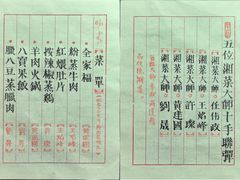 五位湘菜大師十手聯彈
湘菜大師・任偉政
湘菜大師・王焰峰
湘菜大師・許燦
湘菜大師・黄建國
湘菜大師・劉晟
【菜單】
全家福
粉蒸牛肉
紅煨肚片
辣椒蒸鷄
羊肉火鍋
八寶果飯
臘八豆蒸臘肉